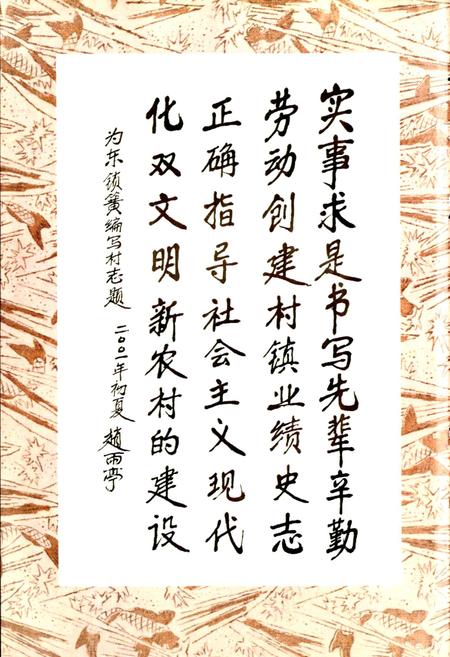 实事求是书写先辈辛勤
劳动创建村镇业绩史志
正确指导社会主义现代
化双文明新农村的建设
为东锁簧编写村志题
二〇〇一年初夏 赵雨亭